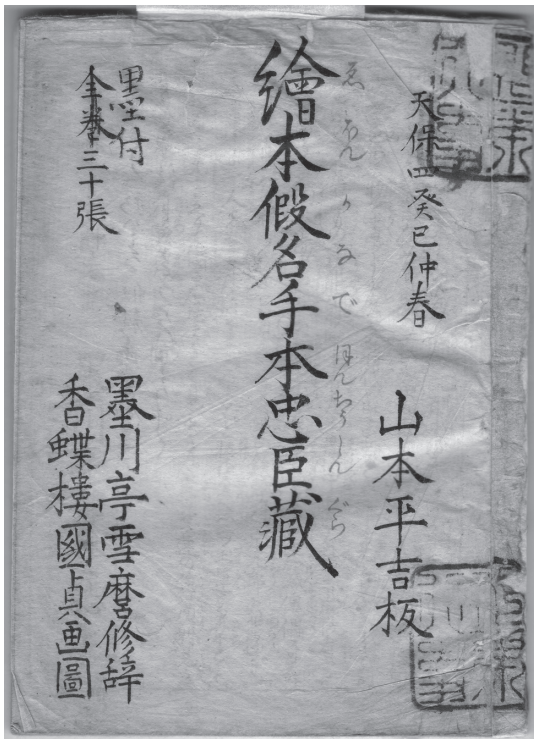 天保四癸巳仲春
山本平吉板
繪本假名手本忠臣藏
ゑほんかなでほんちうしんぐら
墨付
全卷三十張
墨川亭雪麿修辞
香蝶樓國貞画圖